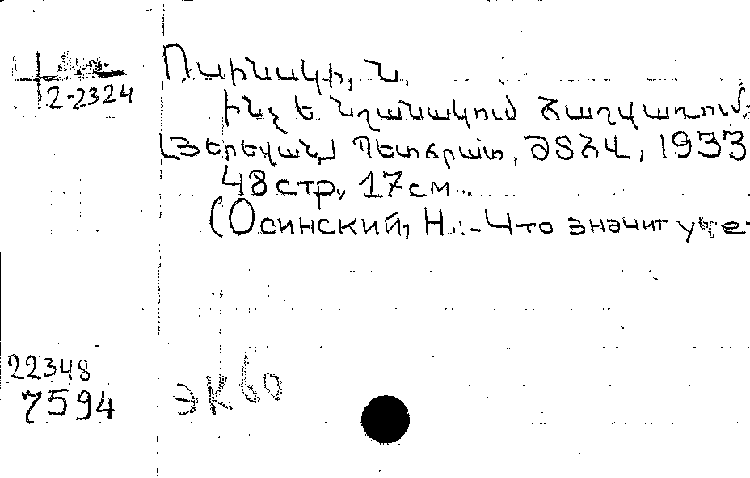 2-2324
Ին՞չ է նշանակում հաշվառում
[Յերեվան,] Պետհրատ, 1933
48 стр., 17 см.
(Осинский, Н. :- Что значит учет
22348
7594
эк 60